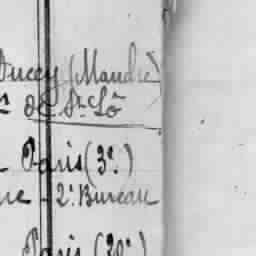 Ducey (Manche)
de St. Lô
Paris (3e.)
2e. Bureau
Paris (20e.)